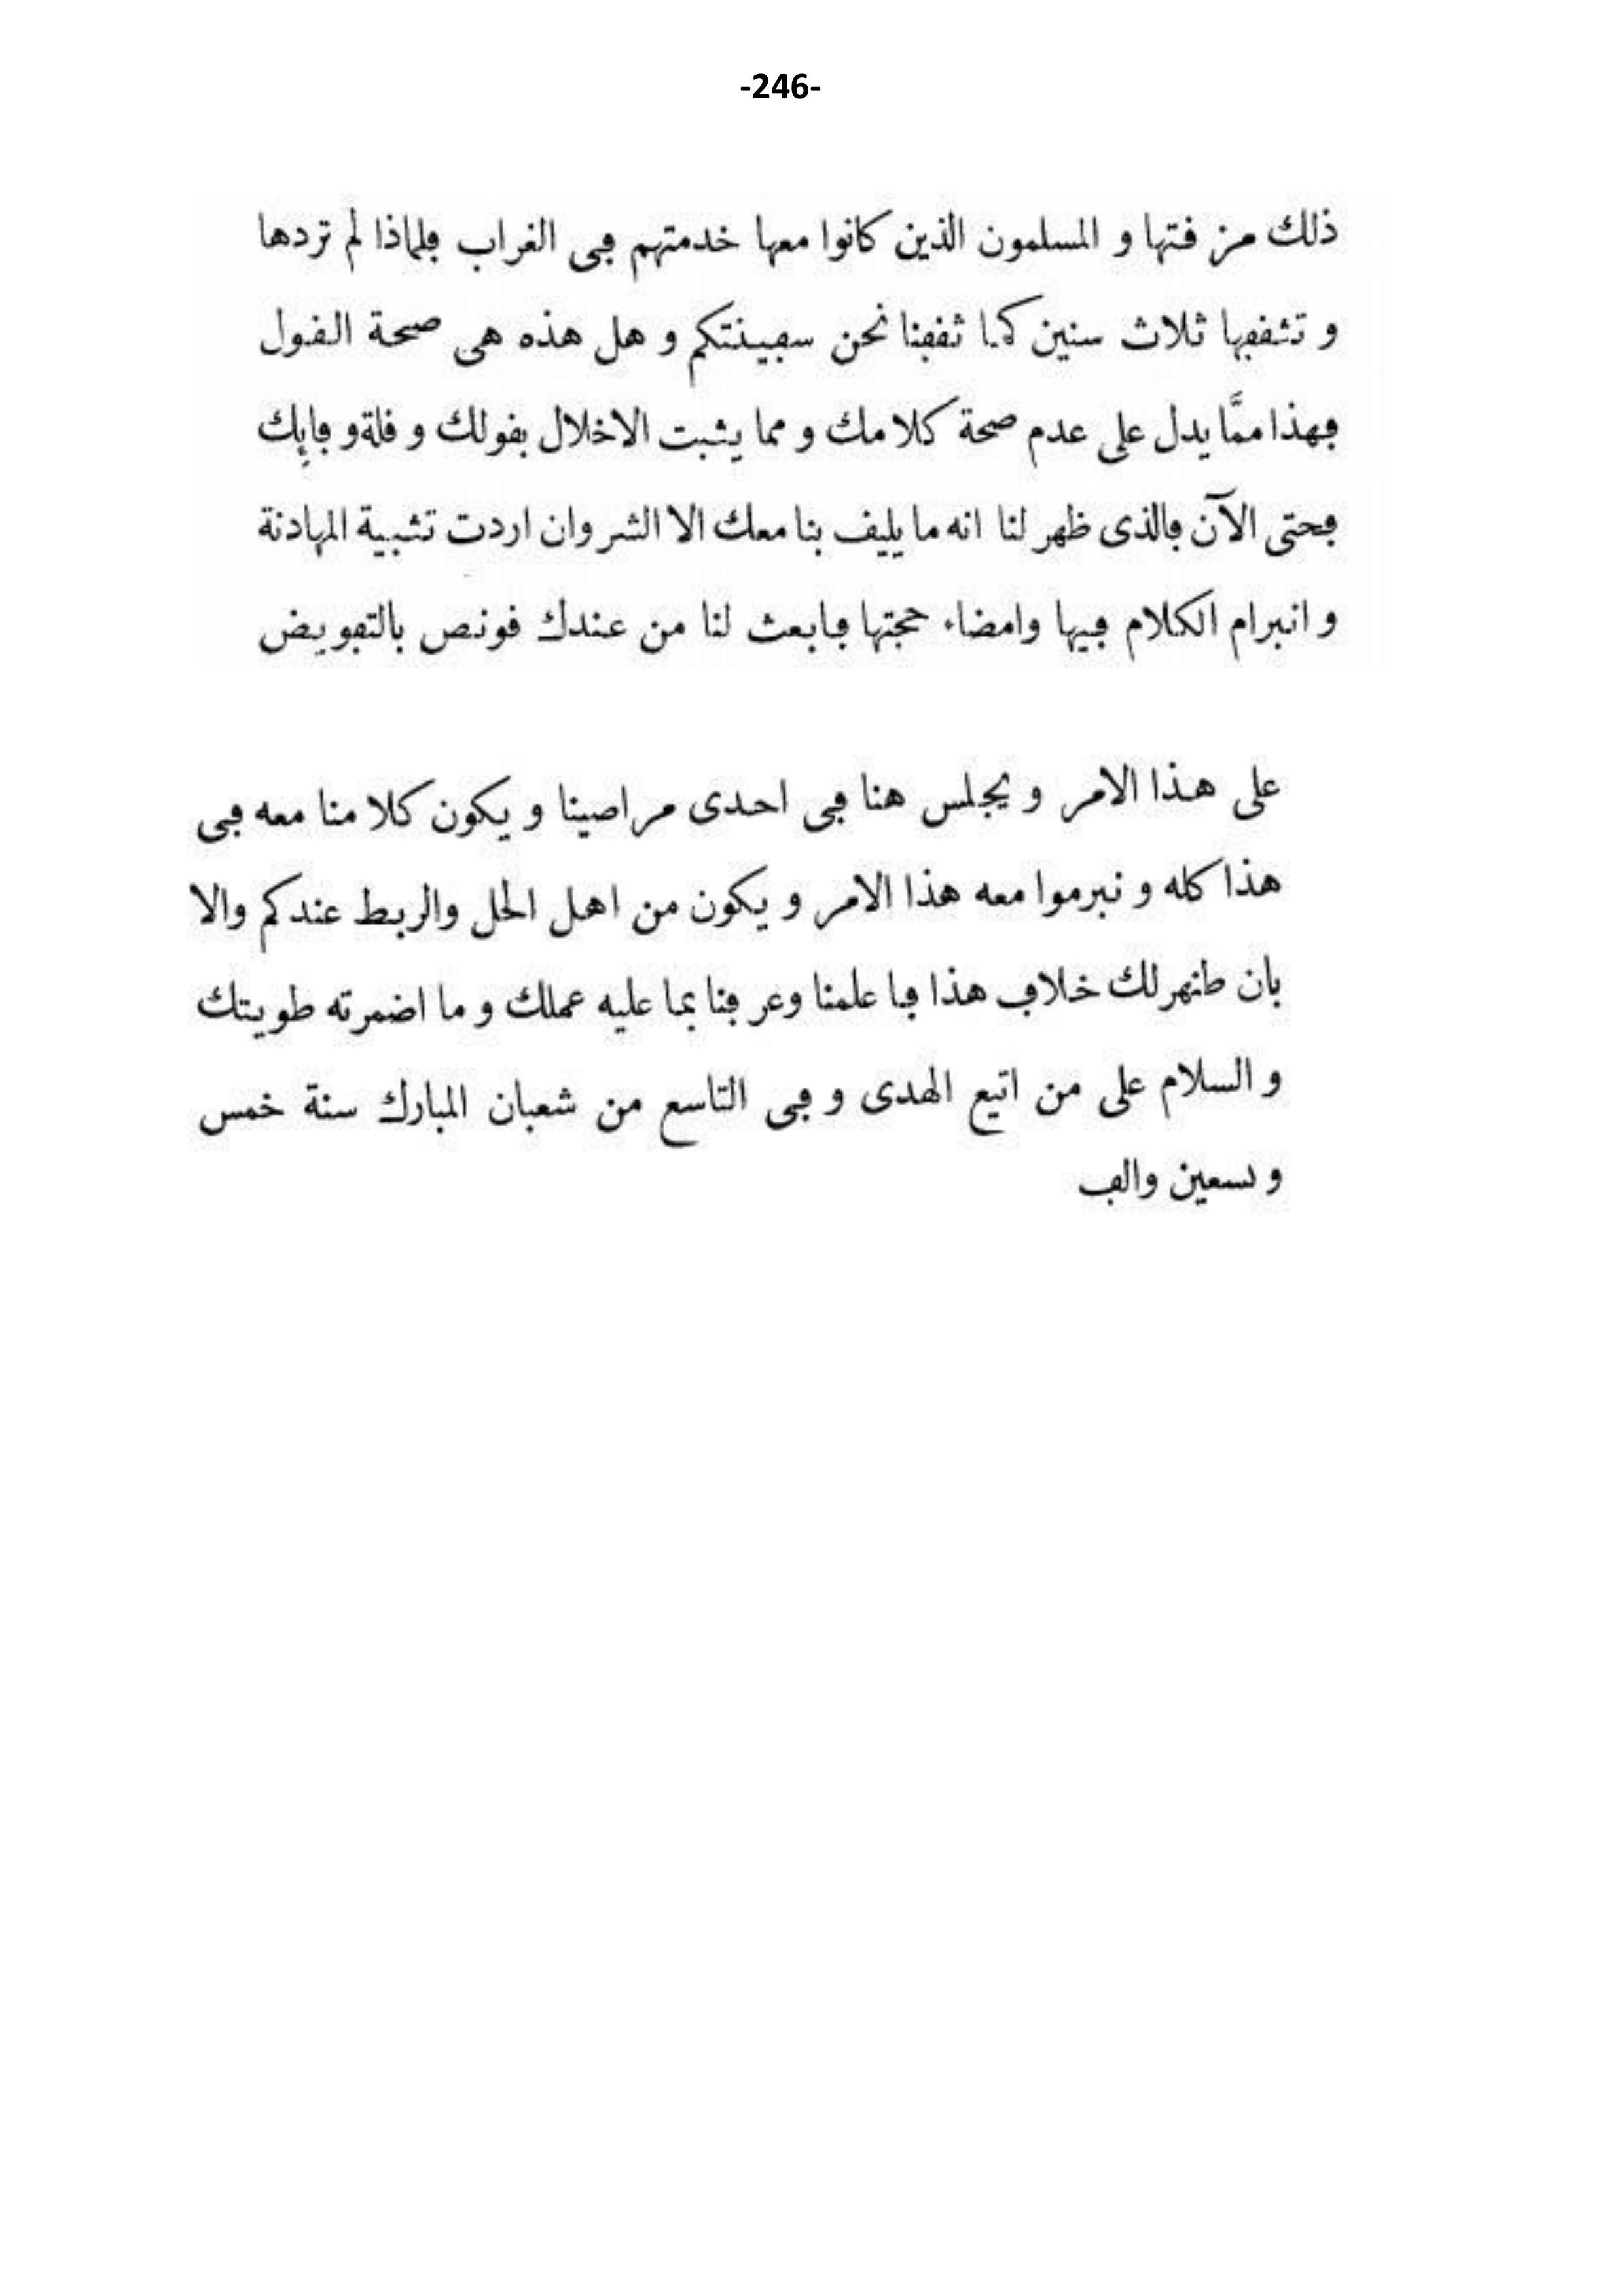 -246-
ذلك من قتها و المسلمون الذين كانوا معها خدمتهم في الغراب فلماذا لم تردها
و تثقفها ثلاث سنين كما ثقفنا نحن سفينتكم و هل هذه هى صحة القول
فهذا ممَّا يدل على عدم صحة كلامك و مما يثبت الاخلال بقولك و قلة و فايك
فحتى الآن فالذى ظهر لنا انه ما يليق بنا معك الا الشر وان اردت تثبية المهادنة
و انبرام الكلام فيها وامضاء حجتها فابعث لنا من عندك قونص بالتفويض
على هذا الامر و يجلس هنا فى احدى مراصينا و يكون كلامنا معه فى
هذا كله و نبرموا معه هذا الامر و يكون من اهل الحل والربط عندكم والا
بان طنهر لك خلاف هذا فا علمنا وعرفنا بما عليه عملك و ما اضمرته طويتك
و السلام على من اتبع الهدى و فى التاسع من شعبان المبارك سنة خمس
و تسعين والف